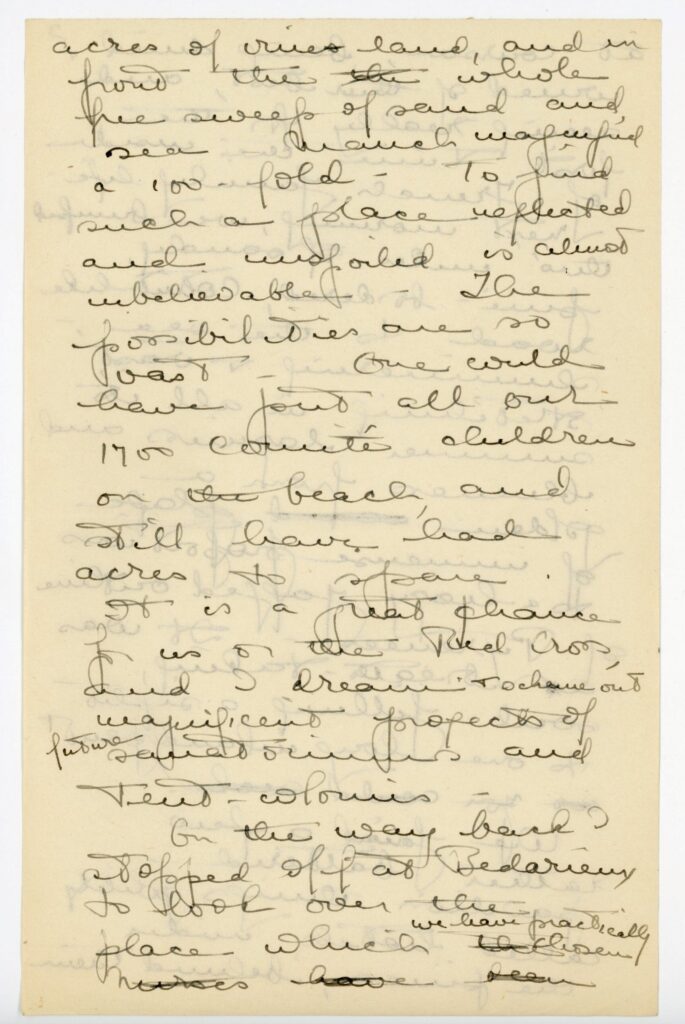 acres of vines land, and in
front the the whole
free sweep of sand and
sea magnified
a 100-fold - To find
such a place neglected
and unspoiled is almost
unbelievable - The
possibilities are so
vast - One could
have put all our
1700 Comité children
on the beach, and
still have had
acres to spare.
It is a great chance
for us or the Red Cross,
and I dream + scheme out
magnificent projects of
future sanatoriums and
tent-colonies -
On the way back I
stopped off at Bedarieux
to look over the
we have practically
place which chosen
nurses have been